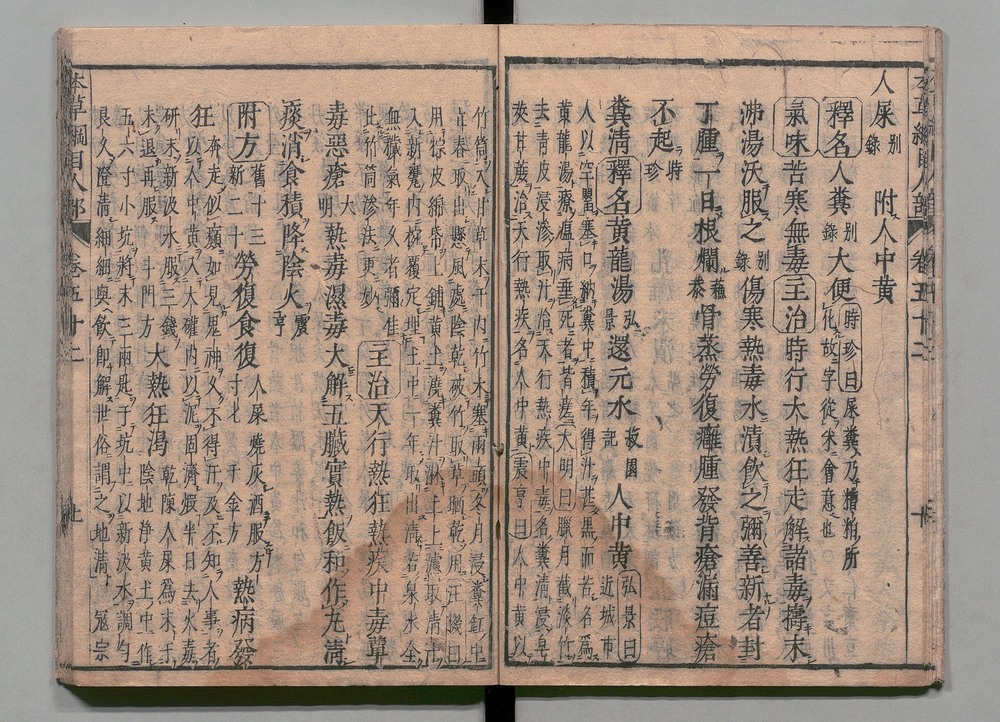 本草綱目人部 卷五十二 十
人屎別錄 附人中黃
釋名人糞別錄大便時珍曰屎糞乃糟粕所化故字從米會意也
氣味苦寒無毒主治時行大熱狂走解諸毒擣末
沸湯沃服之別錄傷寒熱毒水漬飲之彌善新者封
丁腫一日根爛蘇恭骨蒸勞復癰腫發背瘡漏痘瘡
不起時珍
糞清釋名黃龍湯弘景還元水菽園記人中黃弘景曰近城市
人以空罌塞口納糞中積年得汁甚黑而苦名爲
黃龍湯療瘟病垂死者皆瘥大明曰臘月截淡竹
去青皮浸滲取汁治天行熱疾中毒名糞清浸皂
莢甘蔗治天行熱疾名人中黃震亨曰人中黃以
竹筒入甘草末于內竹木塞兩頭冬月浸糞缸中
立春取出懸風處陰乾破竹取草晒乾用汪機曰
用椶皮綿帋上鋪黃土澆糞汁淋土上濾取清汁
入新甕內椀覆定埋土中一年取出清若泉水全
無穢氣年久者彌佳比竹筒滲法更妙主治天行熱狂熱疾中毒蕈
毒惡瘡大明熱毒濕毒大解五臟實熱飯和作丸清
痰消食積降陰火震亨
附方舊十三新二十勞復食復人屎燒灰酒服方寸匕千金方熱病發
狂奔走似癲如見鬼神久不得汗及不知人事者
以人中黃入大罐內以泥固濟煅半日去火毒
研末新汲水服三錢未退再服斗門方大熱狂渴乾陳人屎爲末于陰地淨黃土中作
五六寸小坑將末三兩匙于坑中以新汲水調勻
良久澄清細細與飲卽解世俗謂之地清寇宗
本草綱目人部 卷五十二